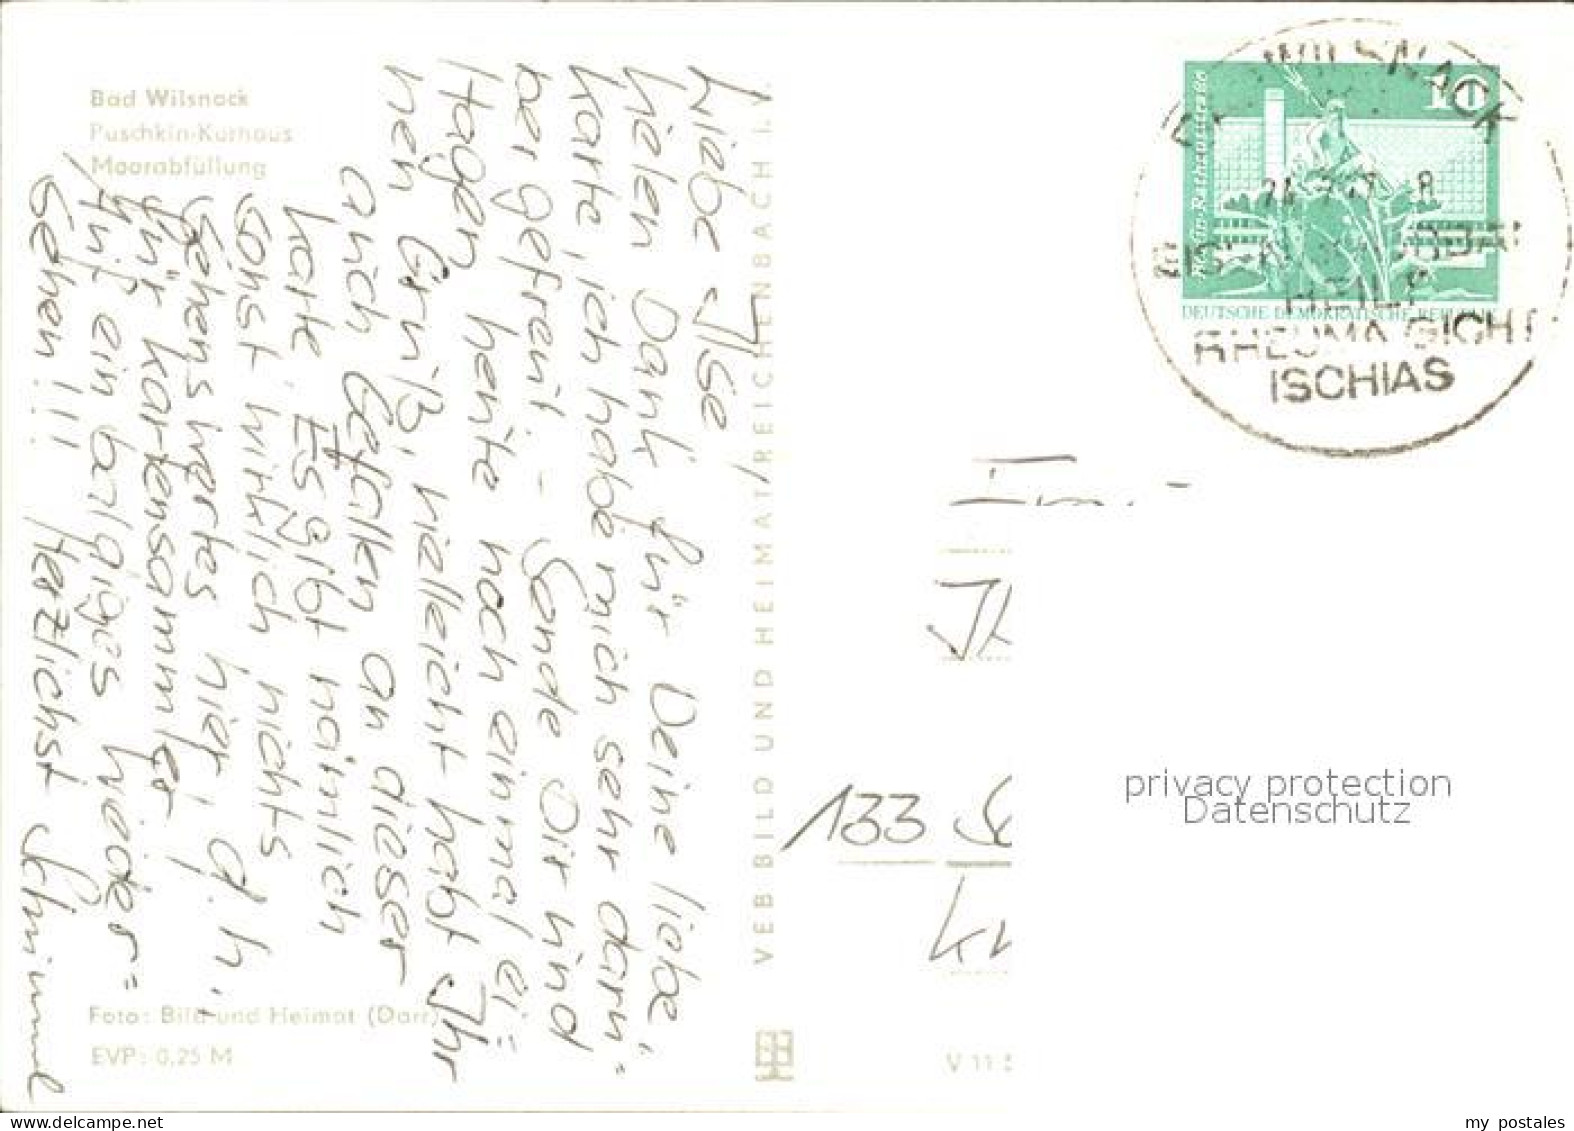 Bad Wilsnack
Puschkin-Kurhaus
Moorabfüllung
Liebe Ilse,
vielen Dank für Deine liebe
Karte, ich habe mich sehr darü-
ber gefreut - Sende Dir und
Hagen heute noch einmal ei=
nen Gruß, vielleicht habt Ihr
auch Gefallen an dieser
Karte. Es gibt nämlich
sonst wirklich nichts
sehenswertes hier, d.h.,
für Kartensammler
Auf ein baldiges Wieder=
sehen!!! Herzlichst
Foto: Bild und Heimat (Darr)
EVP: 0,25 M
VEB BILD UND HEIMAT REICHENBACH I. V.
V 11
10
Berlin-Rathausstraße
DEUTSCHE DEMOKRATISCHE REPUBLIK
BAD WILSNACK
HEILT
RHEUMA GICHT
ISCHIAS
133
privacy protection
Datenschutz
my postales